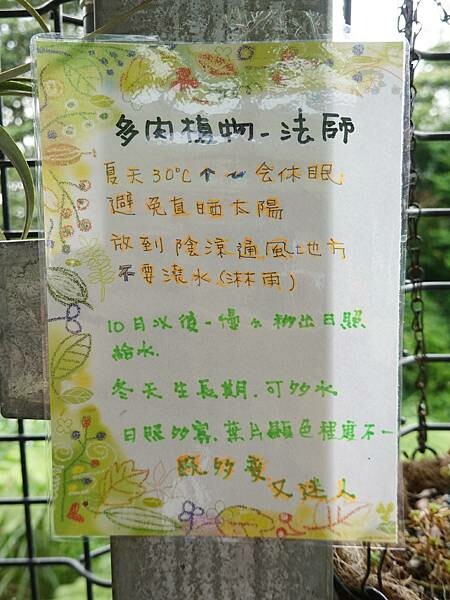 多肉植物-法師
夏天30℃↑～会休眠
避免直晒太陽
放到陰涼通風地方
不要澆水(淋雨)
10月以後-慢々移出日照
給水.
冬天生長期.可多水
日照多寡.葉片顯色程度不一
既多变
又迷人